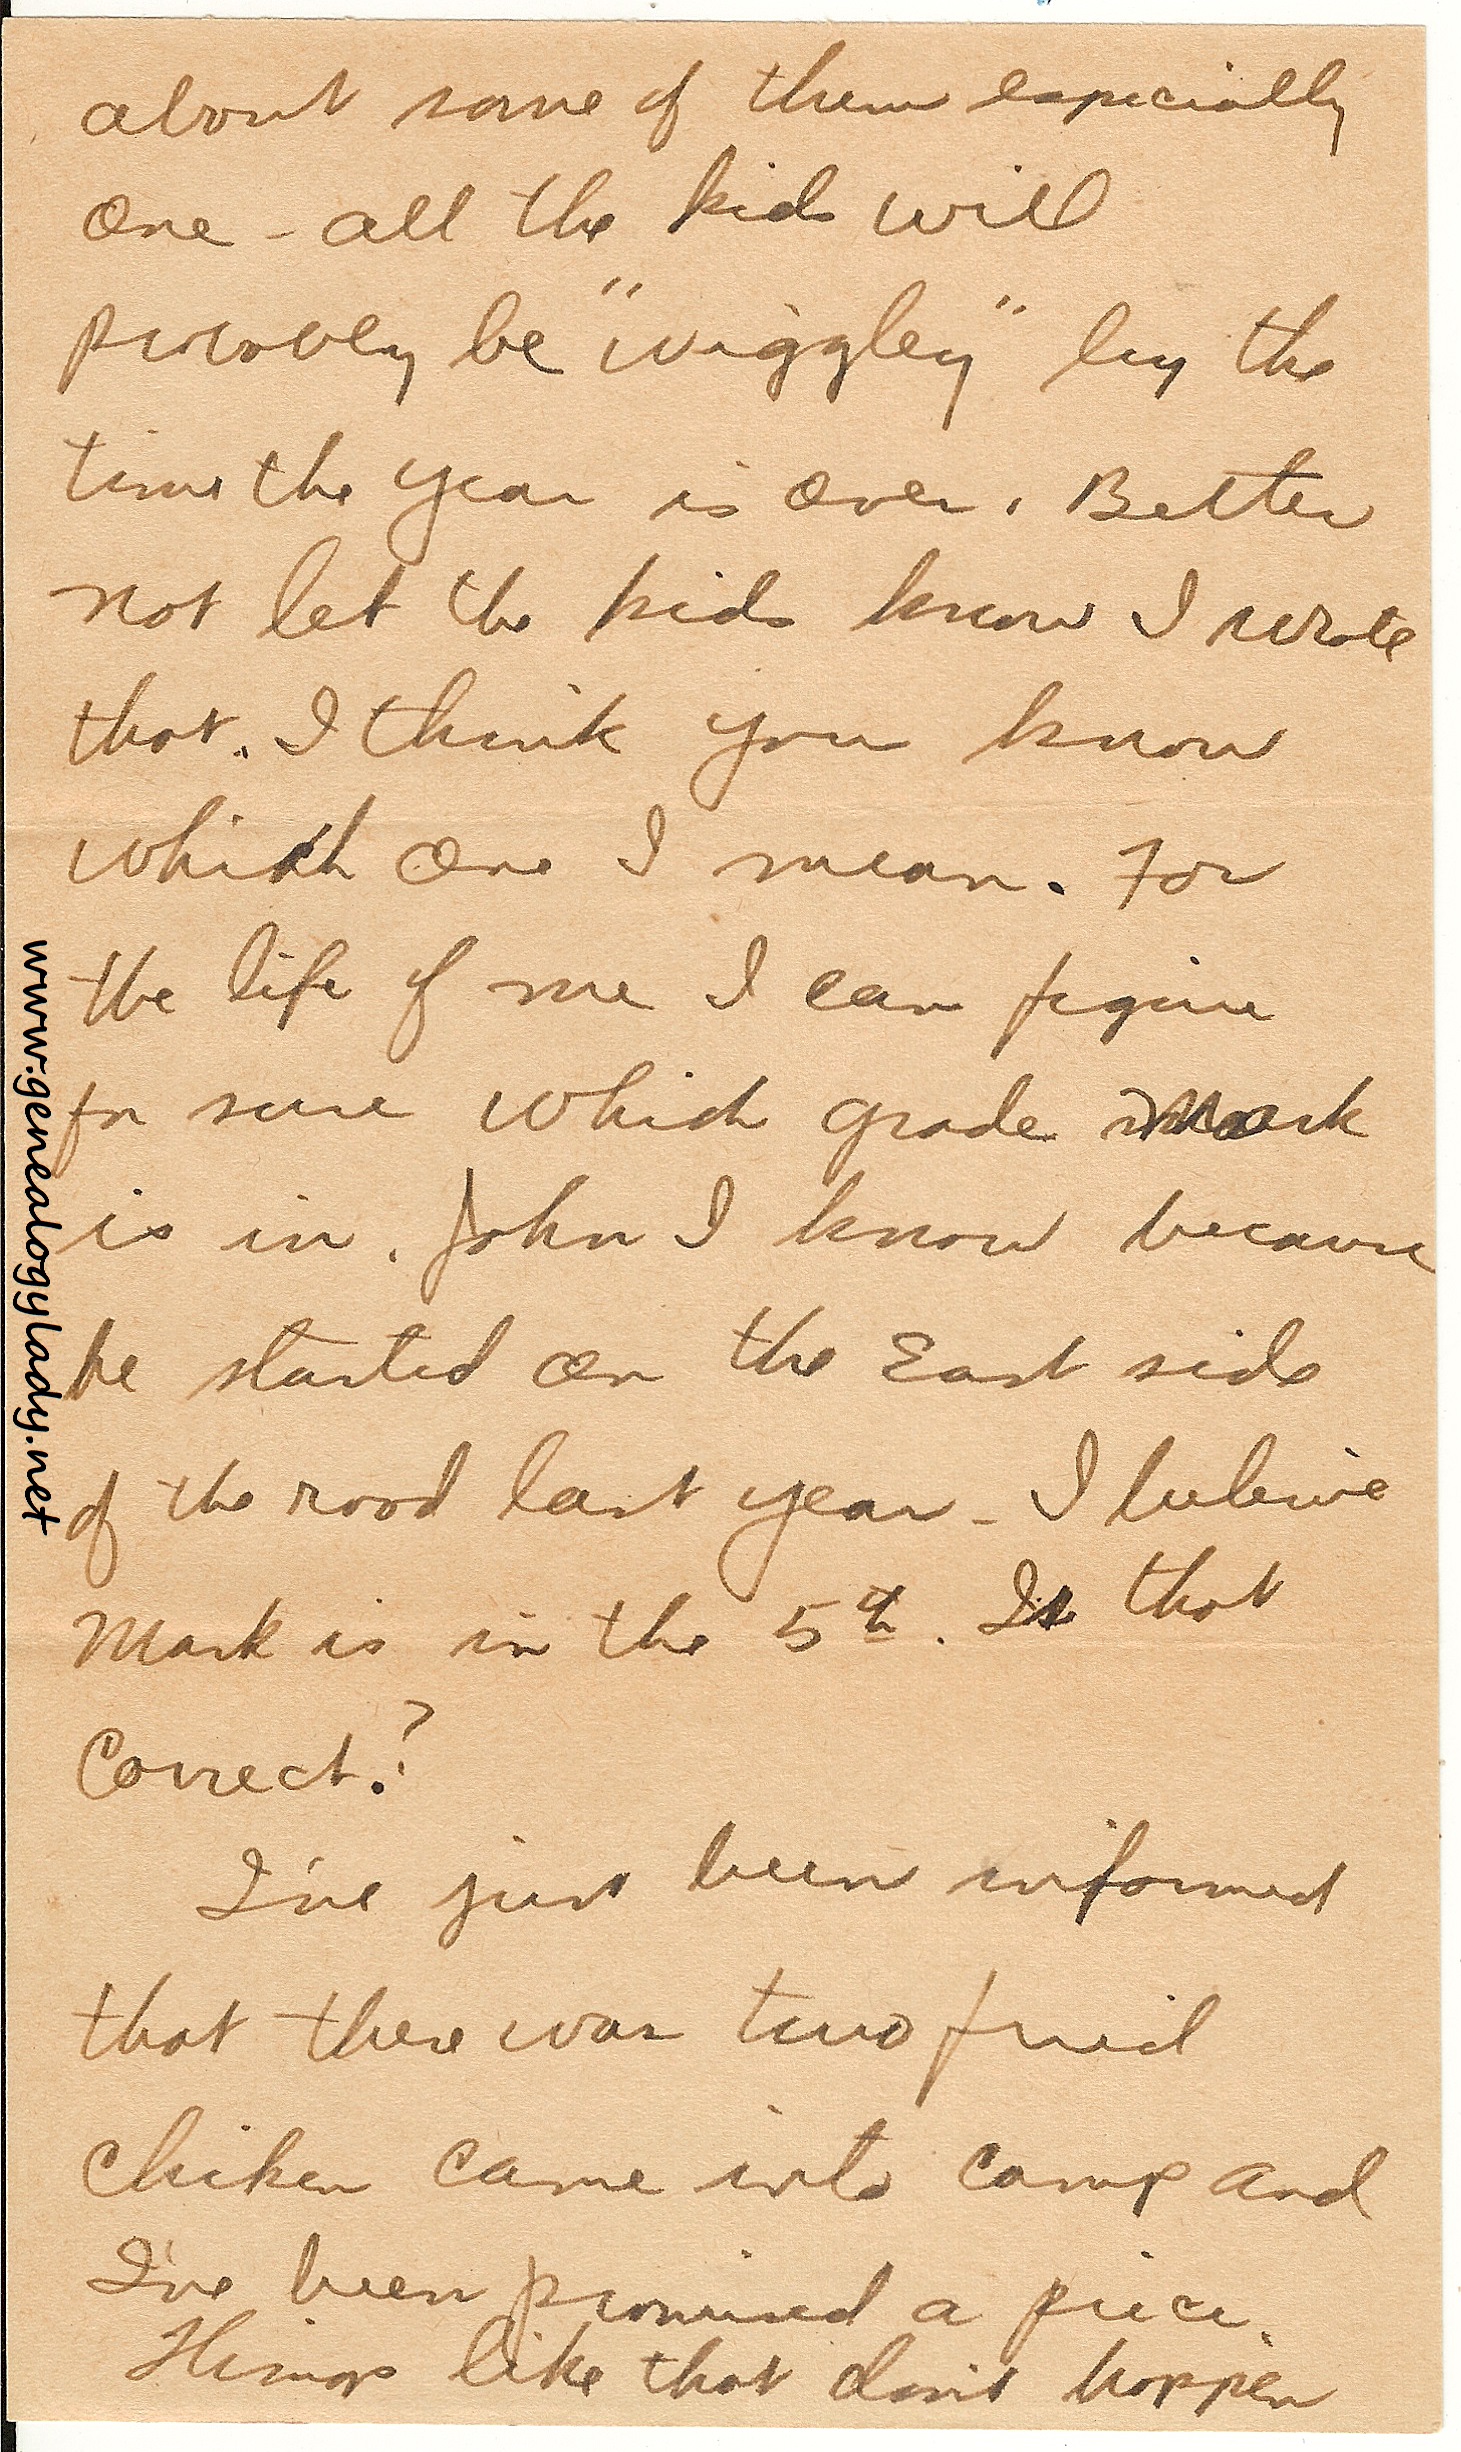 about some of them especially
one - all the kids will
probably be "wiggley" by the
time the year is over. Better
not let the kids know I wrote
that. I think you know
which one I mean. For
the life of me I can figure
for sure which grade Mark
is in. John I know because
he started on the East side
of the road last year - I beleive
Mark is in the 5th. Is that
Correct?
I've just been informed
that there was two fried
chiken came into camp and
I've been promised a piece.
Things like that don't happen
www.genealogylady.net